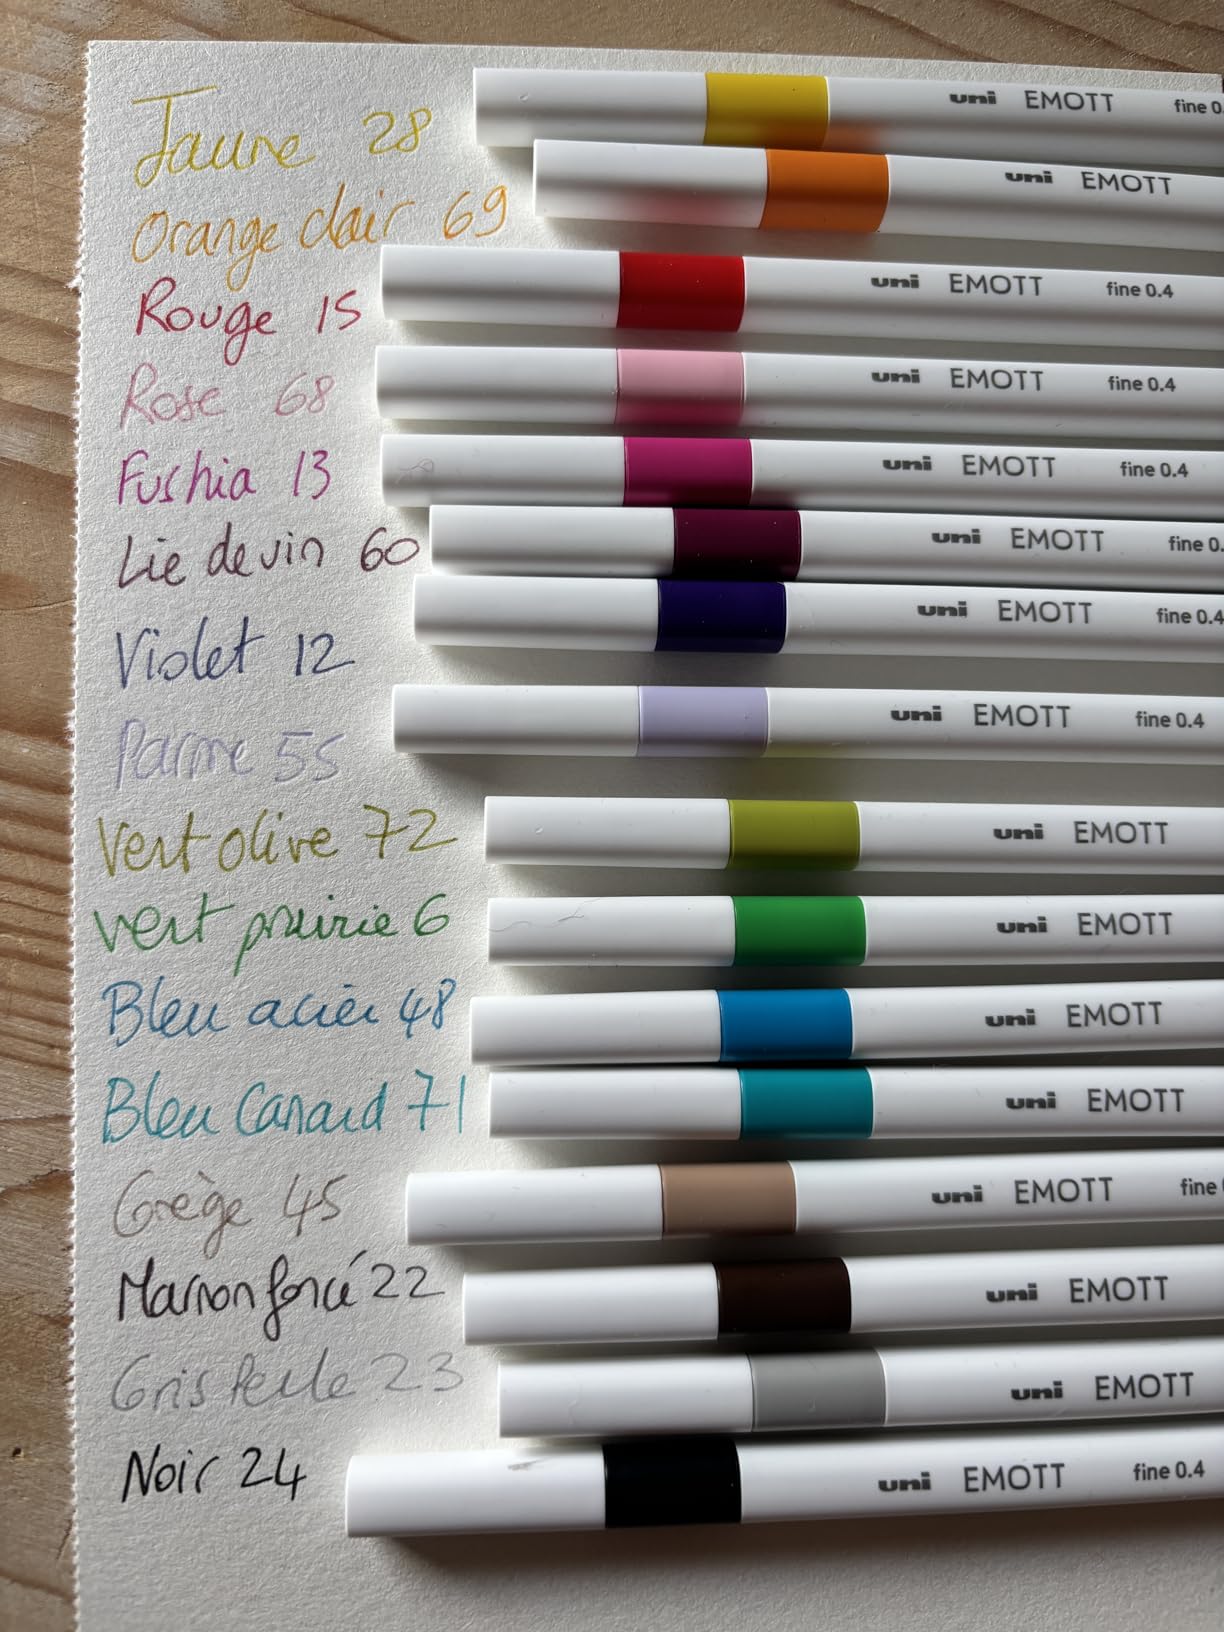 Jaune 28 uni EMOTT fine 0.
Orange clair 69 uni EMOTT
Rouge 15 uni EMOTT fine 0.4
Rose 68 uni EMOTT fine 0.4
Fushia 13 uni EMOTT fine 0.4
Lie de vin 60 uni EMOTT fine 0.
Violet 12 uni EMOTT fine 0.4
Parme 55 uni EMOTT fine 0.4
Vert olive 72 uni EMOTT
Vert prairie 6 uni EMOTT
Bleu acier 48 uni EMOTT
Bleu Canard 71 uni EMOTT
Grège 45 uni EMOTT fine
Marron foncé 22 uni EMOTT
Gris Perle 23 uni EMOTT
Noir 24 uni EMOTT fine 0.4